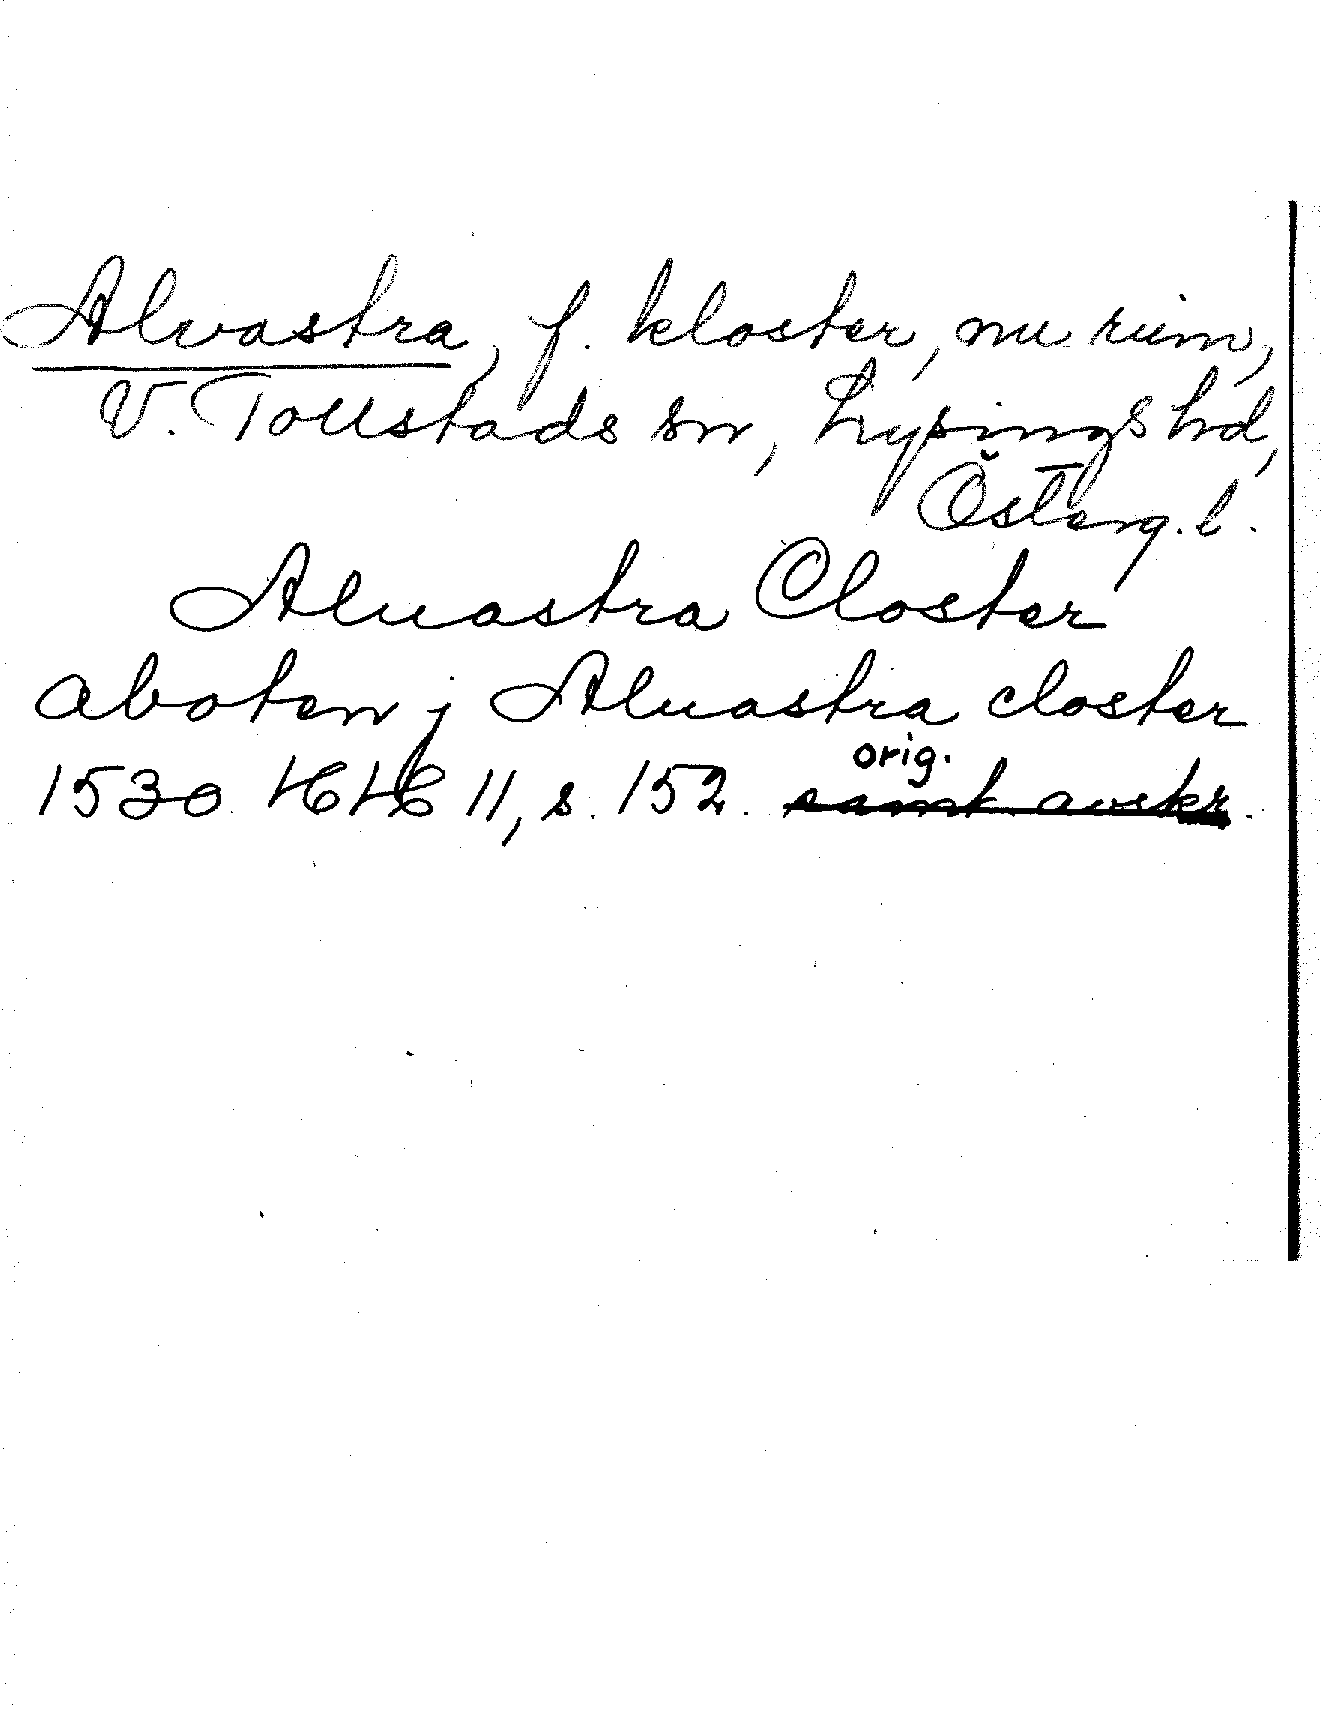 Alvastra, f. kloster, nu ruin,
V. Tollstads sn, Lysings hd,
Österg. l.
Aluastra Closter
aboten j Aluastra closter
orig.
1530 HH 11, s. 152. samt. avskr.